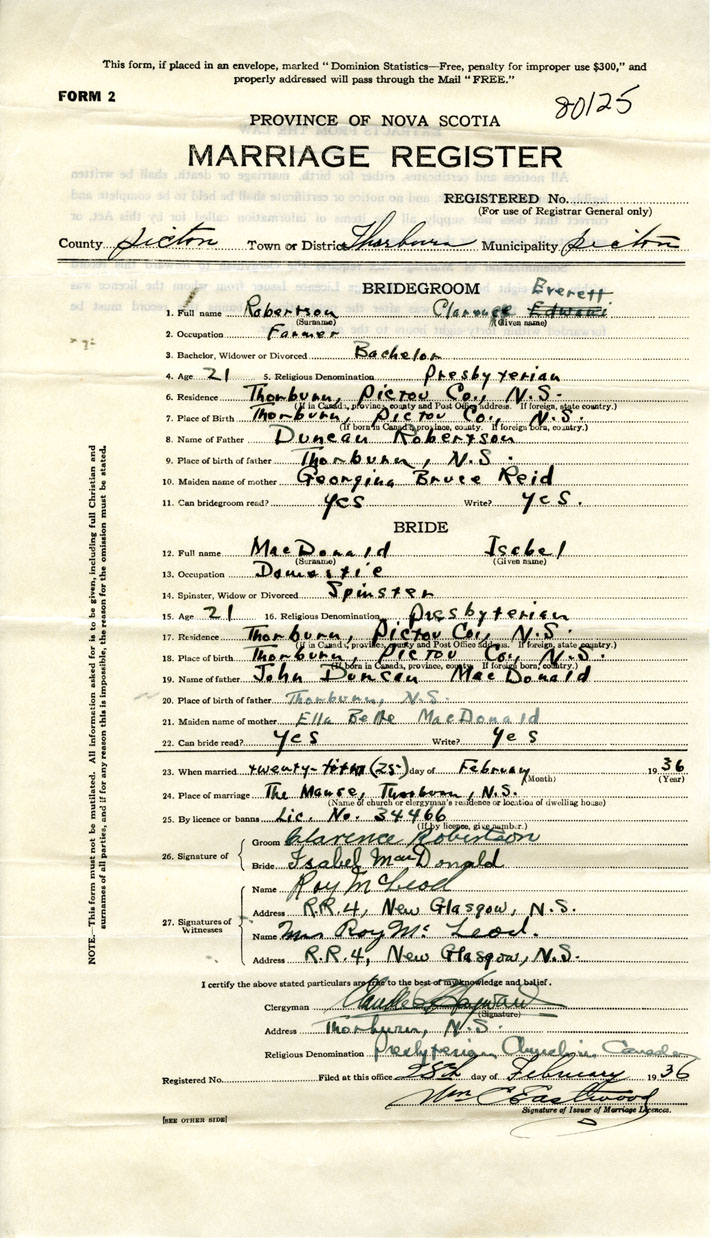 This form, if placed in an envelope, marked "Dominion Statistics—Free, penalty for improper use $300," and
properly addressed will pass through the Mail "FREE."
FORM 2
80125
PROVINCE OF NOVA SCOTIA
MARRIAGE REGISTER
REGISTERED No.
(For use of Registrar General only)
County Pictou Town or District Thorburn Municipality Pictou
BRIDEGROOM
Everett
1. Full name Robertson Clarence Edward
(Surname) (Given name)
2. Occupation Farmer
3. Bachelor, Widower or Divorced Bachelor
4. Age 21 5. Religious Denomination Presbyterian
6. Residence Thorburn, Pictou Co., N.S.
(If in Canada, province, county and Post Office address. If foreign, state country.)
7. Place of Birth Thorburn, Pictou Co., N.S.
(If born in Canada province, county. If foreign born, country.)
8. Name of Father Duncan Robertson
9. Place of birth of father Thorburn, N.S.
10. Maiden name of mother Georgina Bruce Reid
11. Can bridegroom read? Yes Write? Yes.
BRIDE
12. Full name MacDonald Isabel
(Surname) (Given name)
13. Occupation Domestic
14. Spinster, Widow or Divorced Spinster
15. Age 21 16. Religious Denomination Presbyterian
17. Residence Thorburn, Pictou Co., N.S.
(If in Canada, province, county and Post Office address. If foreign, state country.)
18. Place of birth Thorburn, Pictou Co., N.S.
(If born in Canada, province, county. If foreign born, country.)
19. Name of father John Duncan MacDonald
20. Place of birth of father Thorburn, N.S.
21. Maiden name of mother Ella Belle MacDonald
22. Can bride read? Yes Write? Yes
23. When married twenty-fifth (25) day of February 1936
(Month) (Year)
24. Place of marriage The Manse, Thorburn, N.S.
(Name of church or clergyman's residence or location of dwelling house)
25. By licence or banns Lic. No. 34466
(If by licence, give number.)
26. Signature of
Groom Clarence Robertson
Bride Isabel MacDonald
27. Signatures of Witnesses
Name Roy McLeod
Address R.R.4, New Glasgow, N.S.
Name Mrs Roy McLeod.
Address R.R.4, New Glasgow, N.S.
I certify the above stated particulars are true to the best of my knowledge and belief.
Clergyman
(Signature)
Address Thorburn, N.S.
Religious Denomination Presbyterian Church in Canada
Registered No. Filed at this office 28th day of February 1936
Wm C Eastwood
Signature of Issuer of Marriage Licences.
[SEE OTHER SIDE]
NOTE.—This form must not be mutilated. All information asked for is to be given, including full Christian and
surnames of all parties, and if for any reason this is impossible, the reason for the omission must be stated.